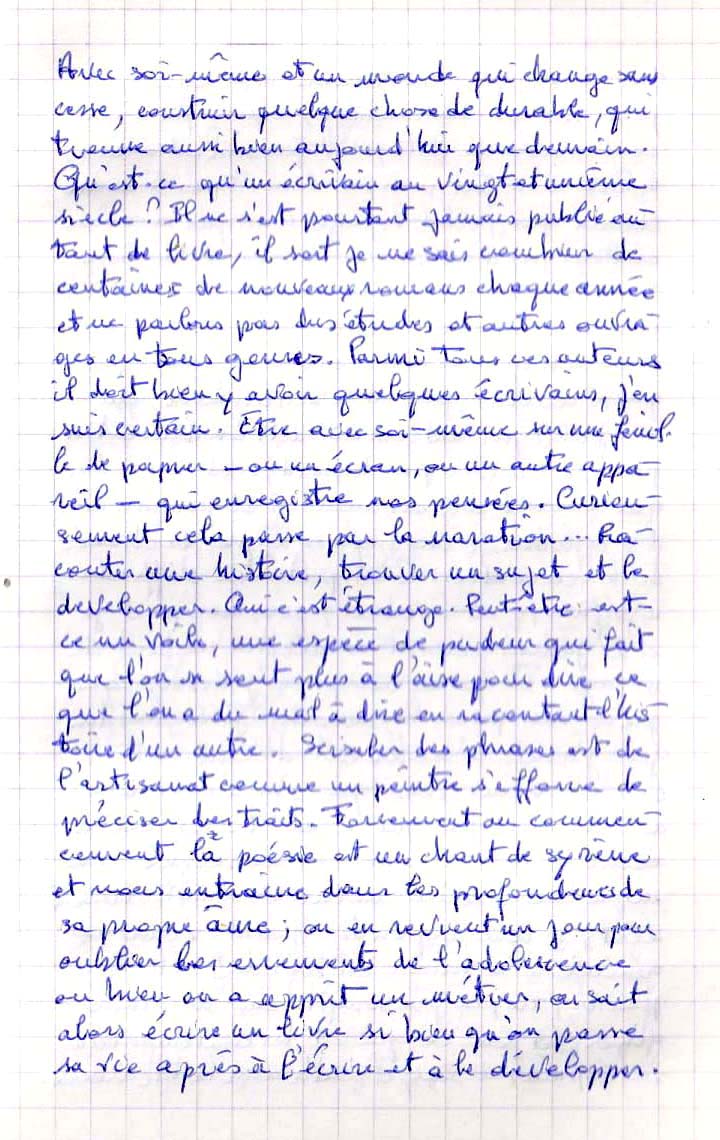 Avec soi-même et un monde qui change sans
cesse, construire quelque chose de durable, qui
tienne aussi bien aujourd'hui que demain.
Qu'est-ce qu'un écrivain au vingt et unième
siècle ? Il ne s'est pourtant jamais publié au-
tant de livre, il sort je ne sais combien de
centaines de nouveaux romans chaque année
et ne parlons pas des études et autres ouvra-
ges en tous genres. Parmi tous ces auteurs
il doit bien y avoir quelques écrivains, j'en
suis certain. Etre avec soi-même sur une feuil-
le de papier — ou un écran, ou un autre appa-
reil — qui enregistre nos pensées. Curieu-
sement cela passe par la naration... Ra-
conter une histoire, trouver un sujet et le
developper. Oui c'est étrange. Peut-être est-
ce un voile, une espèce de pudeur qui fait
que l'on se sent plus à l'aise pour dire ce
que l'on a du mal à dire en racontant l'his
toire d'un autre. Ciseler des phrases est de
l'artisanat comme un peintre s'efforce de
préciser des traits. Forcement au commen-
cement la poésie est un chant de syrène
et nous entraine dans les profondeurs de
sa propre âme ; on en revient un jour pour
oublier les errements de l'adolescence
ou bien on a apprit un métier, on sait
alors écrire un livre si bien qu'on passe
sa vie après à l'écrire et à le développer.